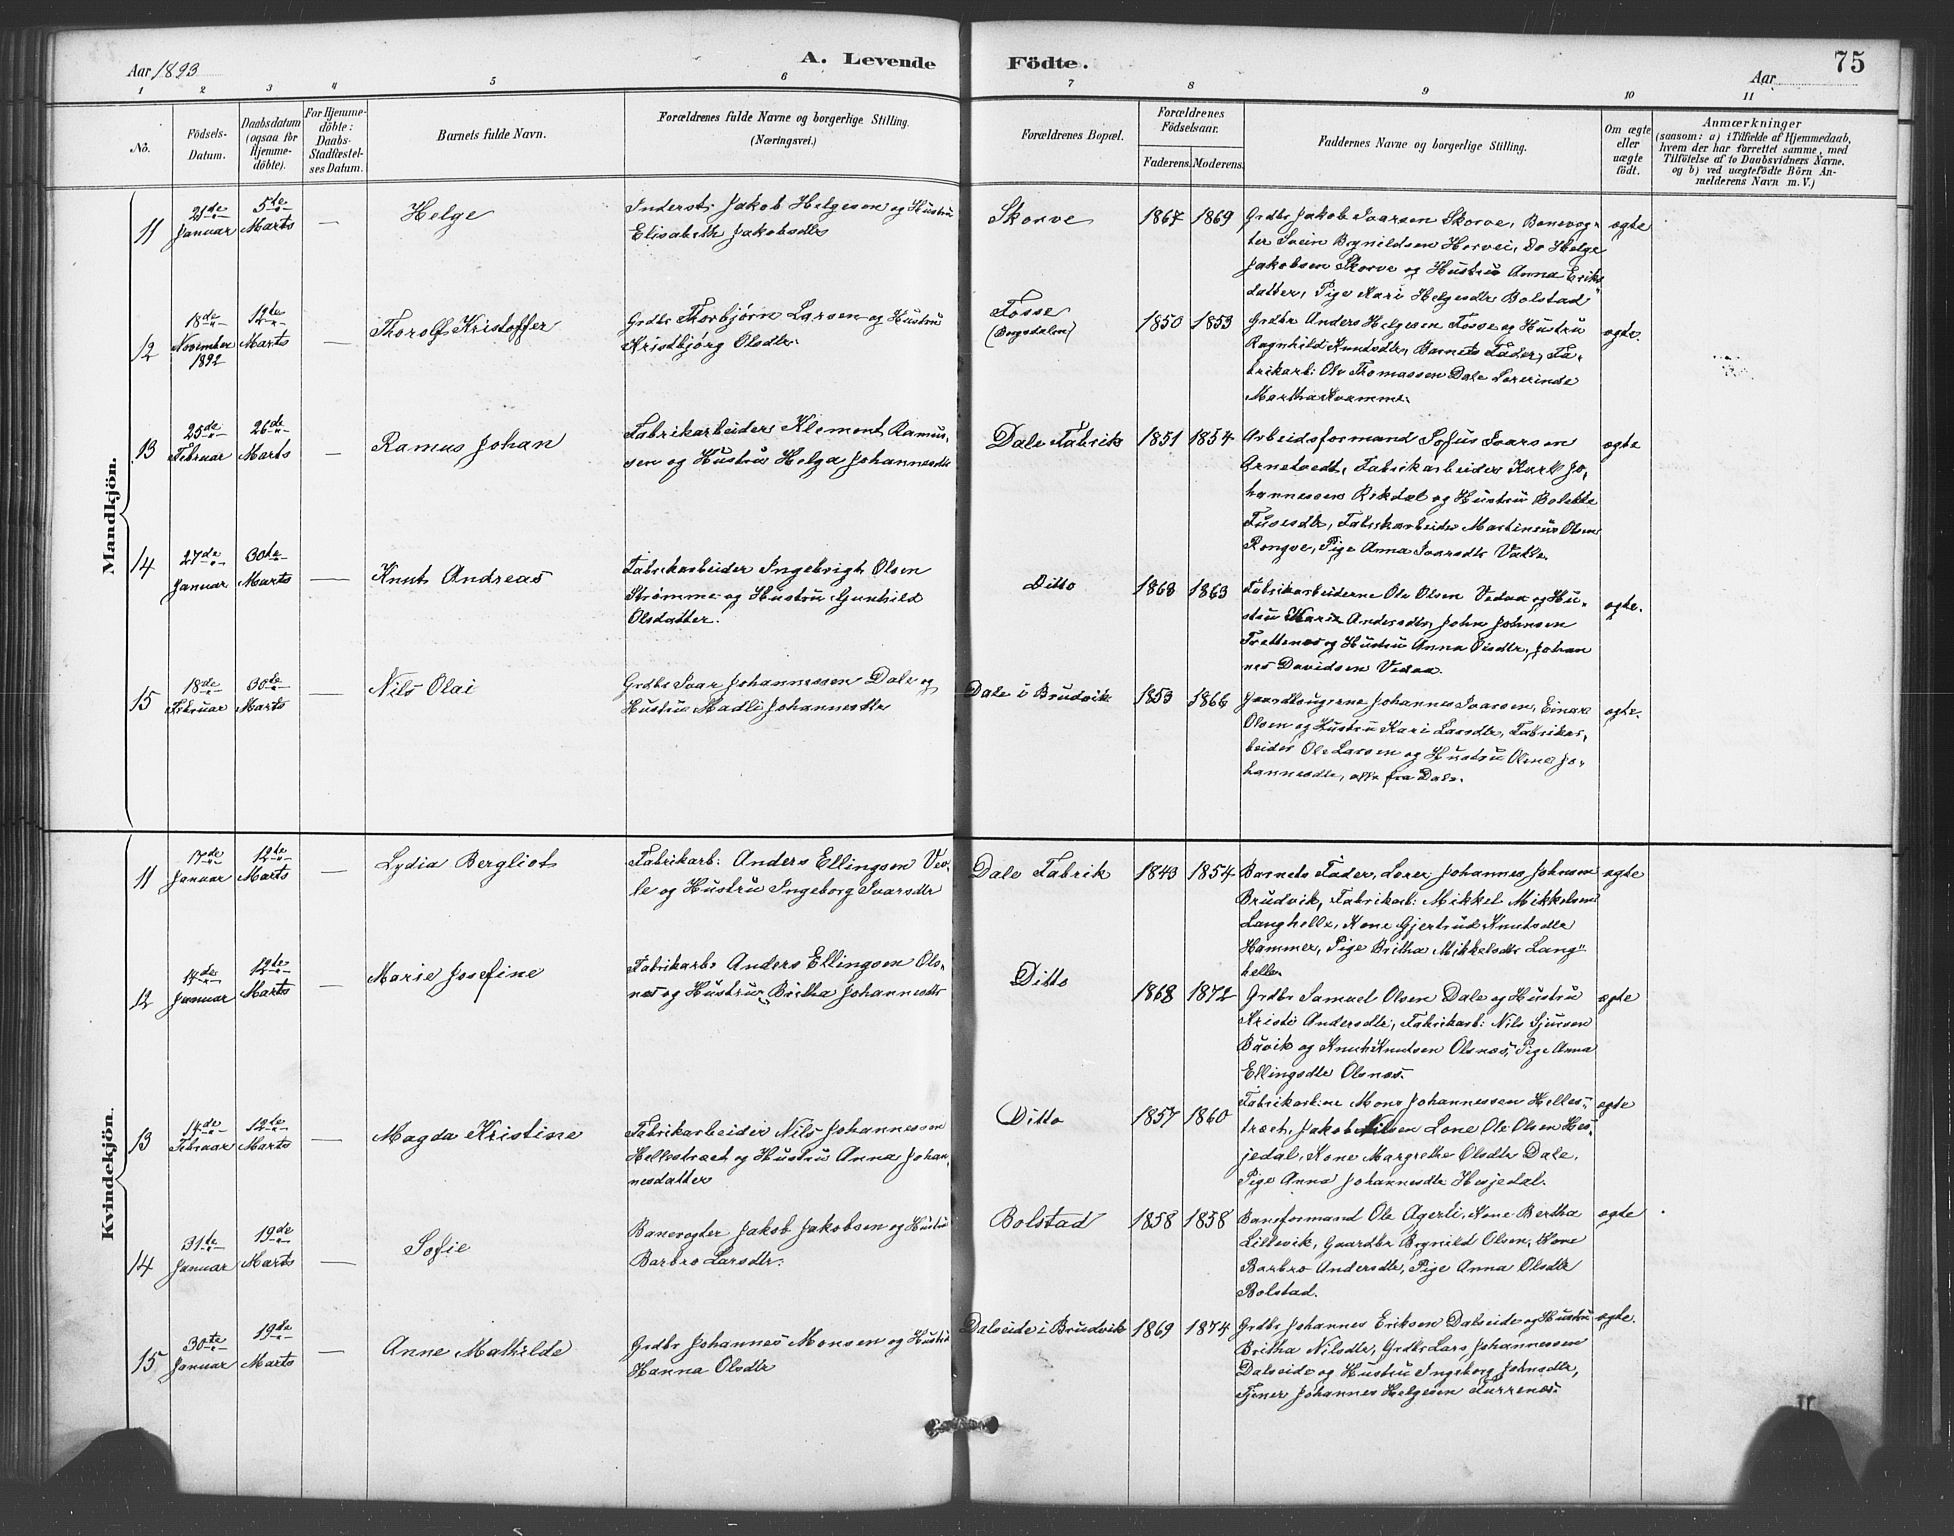 Aar 1893
A. Levende Födte.
75
Aar
1 2 3 4 5 6 7 8 9 10 11
No.
Födsels-Datum.
Daabsdatum (ogsaa for Hjemme-döbte).
For Hjemme-döbte: Daabs-Stadfæstel-ses Datum.
Barnets fulde Navn.
Forældrenes fulde Navne og borgerlige Stilling. (Næringsvei.)
Forældrenes Bopæl.
Forældrenes Födselsaar.
Faderens. Moderens.
Faddernes Navne og borgerlige Stilling.
Om ægte eller uægte födt.
Anmærkninger
(saasom: a) i Tilfælde af Hjemmedaab,
hvem der har forrettet samme, med
Tilföielse af to Daabsvidners Navne.
og b) ved uægtefödte Börn An-
melderens Navn m. V.)
Mandkjön.
11 21de Januar 5te Marts — Helge
Inderst: Jakob Helgesen og Hustru
Elisabeth Jakobsdtr
Skorve 1867 1869
Grdbr Jakob Ivarsen Skorve, Banevog-
ter Svein Brynildsen Horvei, Do Helge
Jakobsen Skorve og Hustru Anna Eriks-
datter, Pige Kari Helgesdtr Bolstad
ægte
12 18de November 1892 12te Marts — Thorolf Kristoffer
Grdbr Thorbjørn Larsen og Hustru
Kristbjørg Olsdtr.
Fosse
(Bergsdalen)
1850 1853
Grdbr Anders Helgesen Fosse og Hustru
Ragnhild Knudsdtr, Barnets Fader, Fa-
brikarb: Ole Thomassen Dale Lærerinde
Martha Kvamme.
ægte.
13 25de Februar 26de Marts — Ramus Johan
Fabrikarbeider Klement Ramus-
sen og Hustru Helga Johannesdtr
Dale Fabrik 1851 1854
Arbeidsformand Sofus Ivarsen
Arnetvedt, Fabrikarbeider Karl Jo-
hannessen Rikdal og Hustru Bolette
Tuvesdtr, Fabrikarbeider Martineus Olsen
Rongve, Pige Anna Ivarsdtr Vatle.
ægte
14 27de Januar 30te Marts — Knut Andreas
Fabrikarbeider Ingebrigt Olsen
Strømme og Hustru Gunhild
Olsdatter.
Ditto 1868 1863
Fabrikarbeiderne Ole Olsen Vedaa og Hu-
stru Marie Andersdtr, John Johnsen
Trettenes og Hustru Anna Olsdtr, Johan
nes Davidsen Vedaa.
ægte.
15 18de Februar 30de Marts — Nils Olai
Grdbr Ivar Johannessen Dale og
Hustru Madli Johannesdtr
Dale i Brudvik 1853 1866
Gaardbrugerne Johannes Ivarsen, Einar
Olsen og Hustru Kari Larsdtr, Fabrikar-
beider Ole Larsen og Hustru Olena Jo-
hannesdtr, alle fra Dale.
ægte.
Kvindekjön.
11 13de Januar 12te Marts — Lydia Bergliot
Fabrikarb: Anders Ellingsen Ved-
le og Hustru Ingeborg Ivarsdtr
Dale Fabrik 1843 1854
Barnets Fader, Lærer Johannes Johnsen
Brudvik, Fabrikarb: Mikkel Mikkelsen
Langhelle, Kone Gjertrud Knutsdtr
Hammer, Pige Britha Mikkelsdtr Lang-
helle.
ægte
12 14de Januar 12te Marts — Marie Josefine
Fabrikarb: Anders Ellingsen Ols-
næs og Hustru Britha Johannesdtr
Ditto 1868 1872
Grdbr Samuel Olsen Dale og Hustru
Kristi Andersdtr, Fabrikarb: Nils Sjursen
Buvik og Knut Knutsen Olsnæs, Pige Anna
Ellingsdtr Olsnæs.
ægte
13 14de Februar 12te Marts — Magda Kristine
Fabrikarbeider Nils Johannessen
Hellestræet og Hustru Anna Johan-
nesdatter
Ditto 1857 1860
Fabrikarb:ne Mons Johannessen Helles-
træet, Jakob Nilsen Lone Ole Olsen Hes-
jedal, Kone Margrethe Olsdtr Dale,
Pige Anna Johannesdtr Hesjedal.
ægte
14 31te Januar 19de Marts — Sofie
Banevogter Jakob Jakobsen og Hustru
Barbro Larsdtr.
Bolstad 1858 1858
Baneformand Ole Agerli, Kone Bertha
Lillevik, Gaardbr Brynild Olsen, Kone
Barbro Andersdtr, Pige Anna Olsdtr
Bolstad.
ægte
15 30te Januar 19de Marts — Anne Mathilde
Grdbr Johannes Monsen og Hustru
Hanna Olsdtr
Dalseide i Brudvik 1869 1874
Grdbr Johannes Eriksen Dalseide og Hustru
Britha Nilsdtr, Grdbr Lars Johannessen
Dalseide og Hustru Ingeborg Johnsdtr,
Tjener Johannes Helgesen Furrenæs.
ægte.